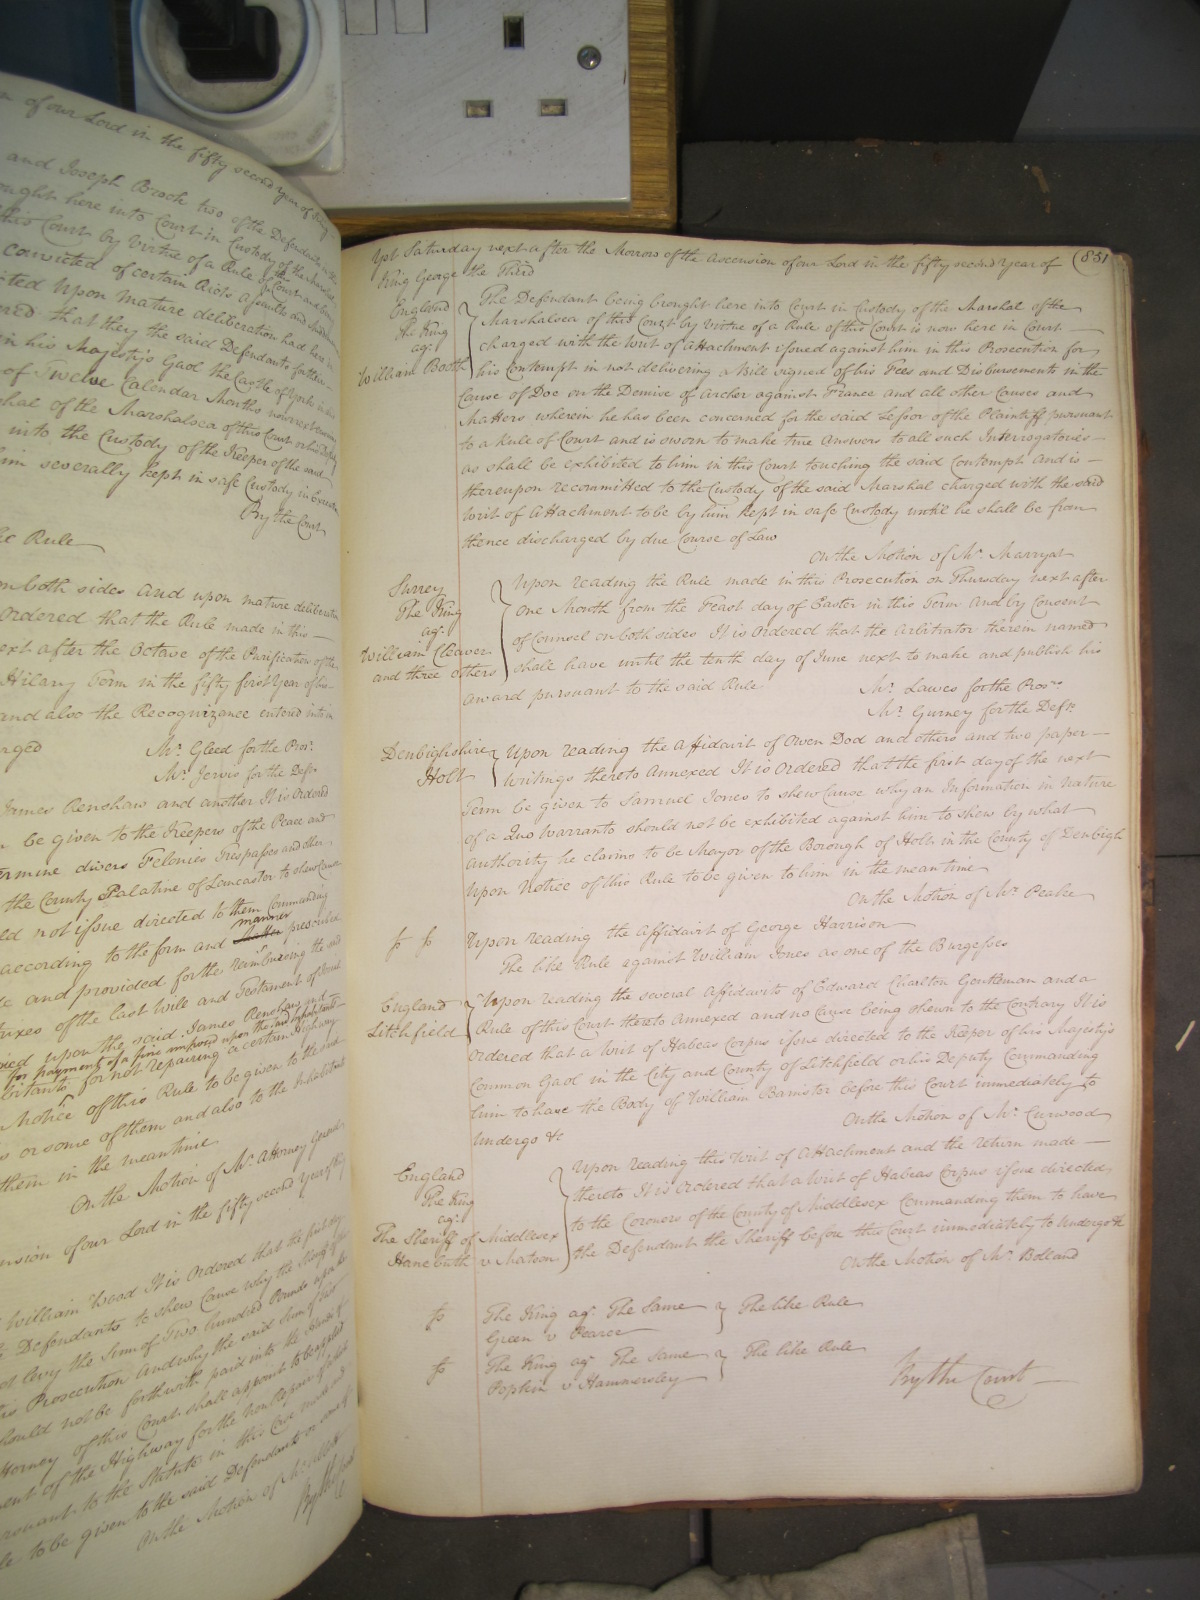 of our Lord in the fifty second Year of King
and Joseph Brook two of the Defendants in this
brought here into Court in Custody of the Marshal
this Court by virtue of a Rule of this Court and being
convicted of certain Riots assaults and
upon mature deliberation had here in
that they the said Defendants for their
in his Majesty's Gaol the Castle of York in this
of Twelve Calendar Months now next ensuing
Marshal of the Marshalsea of this Court or his Deputy
into the Custody of the Keeper of the said
him severally kept in safe Custody in Execution
By the Court
Rule
on both sides and upon mature deliberation
Ordered that the Rule made in this
next after the Octave of the Purification of the
Hilary Term in the fifty first Year of his
and also the Recognizance entered into in
Mr. Gleed for the Prosr.
Mr. Jervis for the Defts.
James Renshaw and another It is Ordered
be given to the Keepers of the Peace and
divers Felonies Trespasses and other
the County Palatine of Lancaster to shew Cause
not issue directed to them Commanding
according to the form and manner prescribed
and provided for the reimbursing the said
of the last Will and Testament of
upon the said James Renshaw and
for payment of a fine imposed upon the said Inhabitants
for not repairing a certain Highway
Notice of this Rule to be given to the said
or some of them and also to the Inhabitants
them in the meantime
On the Motion of Mr. Attorney General
of our Lord in the fifty second Year of King
William Wood It is Ordered that the first day
Defendants to shew Cause why the
levy the Sum of Two hundred Pounds
Prosecution and why the said Sum of
should not be forthwith paid into the Hands of
Attorney of this Court shall appoint to be applied
of the Highway for the non Repair of which
pursuant to the Statute in this Case made and
to be given to the said Defendants or some of
On the Motion of Mr.
By the Court
Yet Saturday next after the Morrow of the Ascension of our Lord in the fifty second Year of (851
King George the Third
England
The King
agt.
William Booth
The Defendant being brought here into Court in Custody of the Marshal of the
Marshalsea of this Court by Virtue of a Rule of this Court is now here in Court
charged with the Writ of Attachment issued against him in this Prosecution for
his Contempt in not delivering a Bill signed of his Fees and Disbursements in the
Cause of Doe on the Demise of Archer against France and all other Causes and
Matters wherein he has been concerned for the said Lessor of the Plaintiff pursuant
to a Rule of Court and is sworn to make true Answers to all such Interrogatories
as shall be exhibited to him in this Court touching the said Contempt and is
thereupon recommitted to the Custody of the said Marshal charged with the said
Writ of Attachment to be by him kept in safe Custody until he shall be from
thence discharged by due Course of Law
On the Motion of Mr. Marryat
Surrey
The King
agt.
William Cleaver
and three others
Upon reading the Rule made in this Prosecution on Thursday next after
One Month from the Feast day of Easter in this Term and by Consent
of Counsel on both sides It is Ordered that the Arbitrator therein named
shall have until the tenth day of June next to make and publish his
award pursuant to the said Rule
Mr. Lawes for the Prosr.
Mr. Gurney for the Deft.
Denbighshire
Holt
Upon reading the Affidavit of Owen Dod and others and two paper
writings thereto Annexed It is Ordered that the first day of the next
Term be given to Samuel Jones to shew Cause why an Information in Nature
of a Quo Warranto should not be exhibited against him to shew by what
authority he claims to be Mayor of the Borough of Holt in the County of Denbigh
Upon Notice of this Rule to be given to him in the meantime
On the Motion of Mr. Peake
Upon reading the Affidavit of George Harrison
The like Rule against William Jones as one of the Burgesses
England
Litchfield
Upon reading the several Affidavits of Edward Charlton Gentleman and a
Rule of this Court thereto Annexed and no Cause being shewn to the Contrary It is
Ordered that a Writ of Habeas Corpus issue directed to the Keeper of his Majesty's
Common Gaol in the City and County of Litchfield or his Deputy Commanding
him to have the Body of William Banister before this Court immediately to
Undergo &c
On the Motion of Mr. Curwood
England
The King
agt.
The Sheriff of Middlesex
Hanebuth v Matson
Upon reading this Writ of Attachment and the return made
thereto It is Ordered that a Writ of Habeas Corpus issue directed
to the Coroners of the County of Middlesex Commanding them to have
the Defendant the Sheriff before this Court immediately to Undergo &c
On the Motion of Mr. Bolland
The King agt. The Same
Green v Pearce
The like Rule
The King agt. The Same
Popkin v Hammersley
The like Rule
By the Court